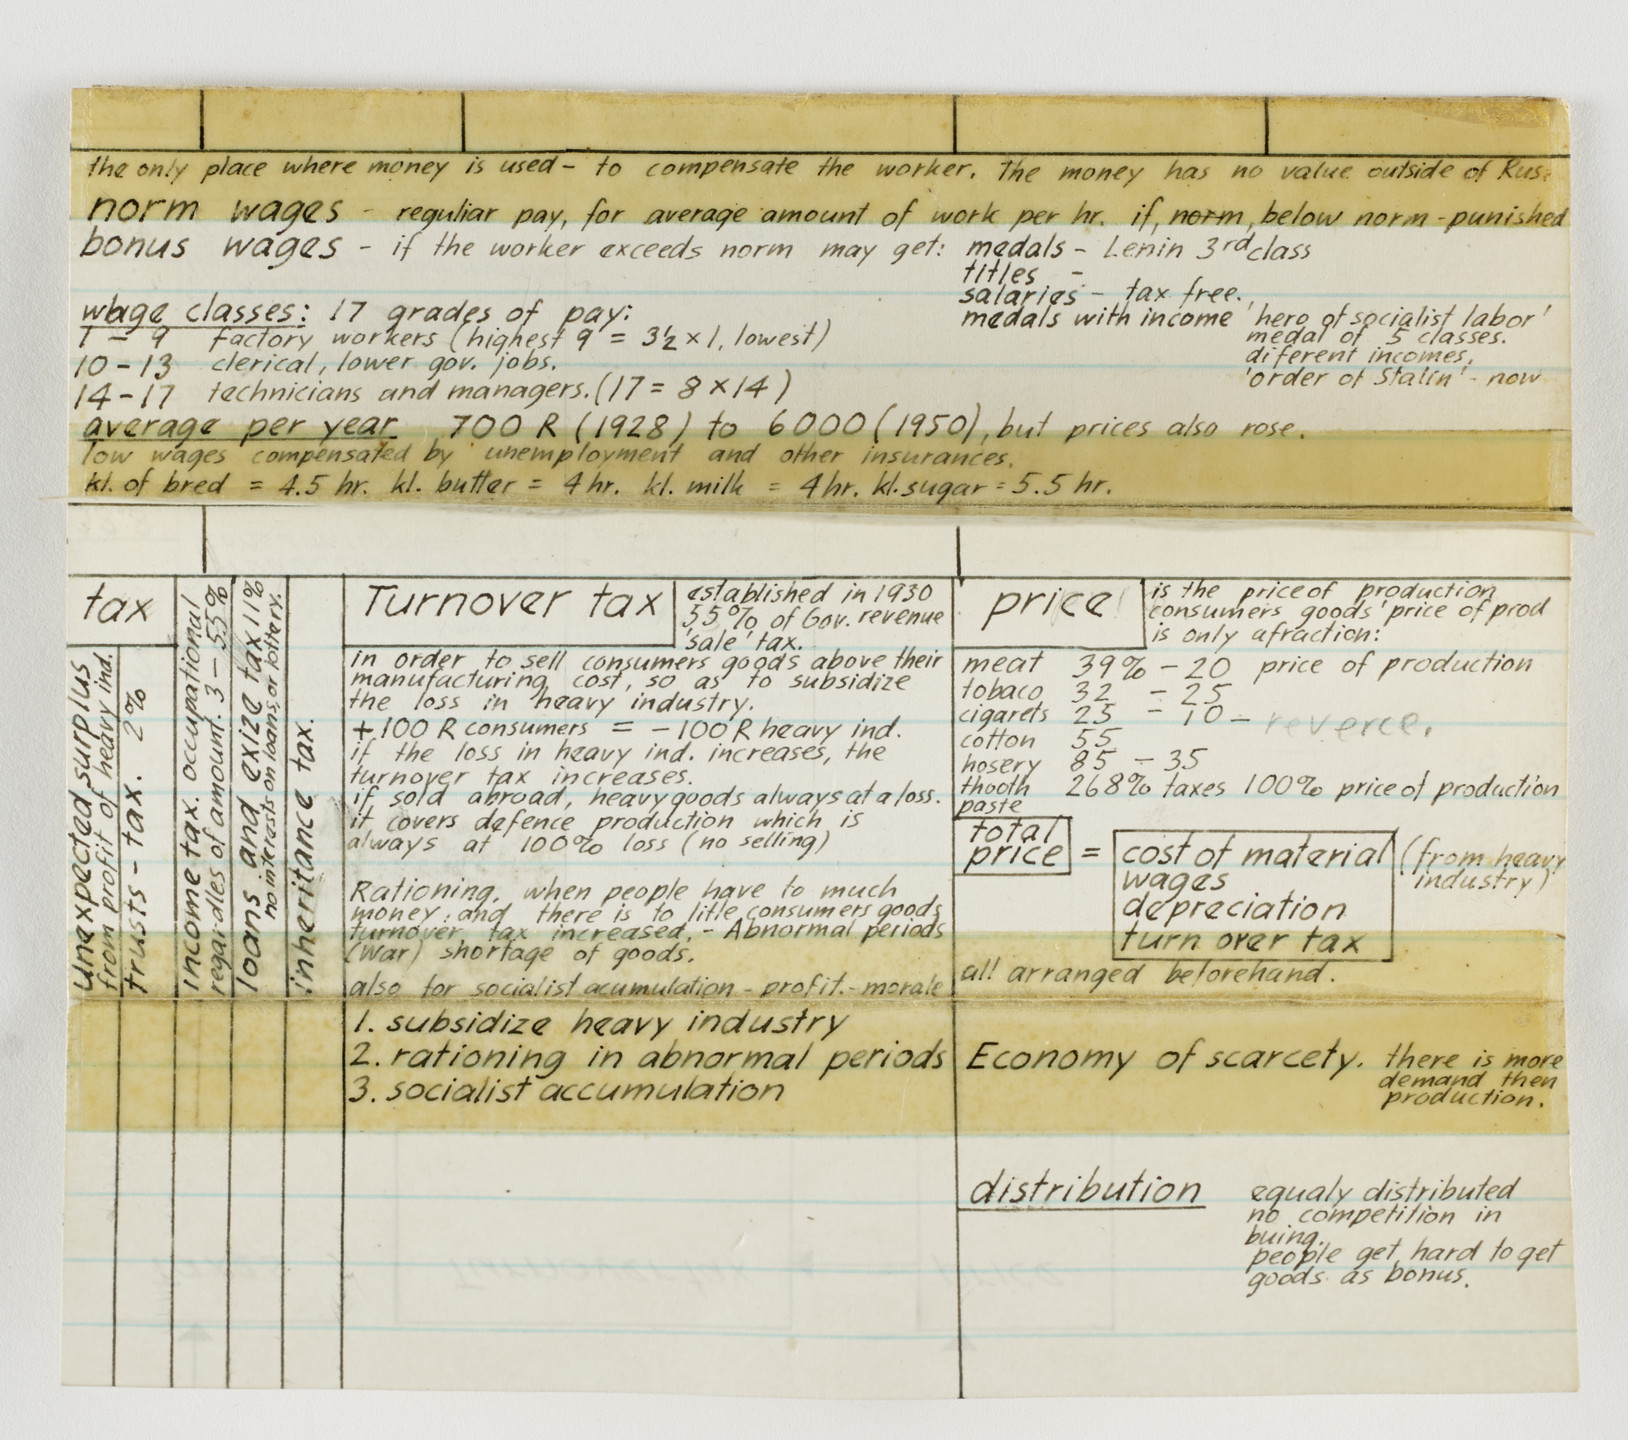 the only place where money is used – to compensate the worker. The money has no value outside of Rus
norm wages - reguliar pay, for average amount of work per hr. if, norm, below norm - punished
bonus wages - if the worker exceeds norm may get: medals - Lenin 3rd class
titles -
salaries - tax free.
medals with income 'hero of socialist labor'
medal of 5 classes.
diferent incomes.
'order of Stalin' - now
wage classes: 17 grades of pay:
1 - 9 factory workers (highest 9 = 3½ x 1, lowest)
10 - 13 clerical, lower gov. jobs.
14 - 17 technicians and managers. (17 = 8 x 14)
average per year 700 R (1928) to 6000 (1950), but prices also rose.
low wages compensated by unemployment and other insurances.
kl. of bred = 4.5 hr. kl. butter = 4 hr. kl. milk = 4 hr. kl. sugar = 5.5 hr.
tax
unexpected surplus
from profit of heavy ind.
trusts - tax. 2%
income tax. occupational
regardles of amount. 3 - 55%
loans and exize tax 11%
no interests on loans, or lottery.
inheritance tax.
Turnover tax
established in 1930
55% of Gov. revenue
'sale' tax.
in order to sell consumers goods above their
manufacturing cost, so as to subsidize
the loss in heavy industry.
+100 R consumers = -100 R heavy ind.
if the loss in heavy ind. increases, the
turnover tax increases.
if, sold abroad, heavy goods always at a loss.
it covers defence production which is
always at 100% loss (no selling)
Rationing. when people have to much
money. and there is to litle consumers goods
turnover tax increased. - Abnormal periods
(War) shortage of goods.
also for socialist acumulation - profit. - morale
1. subsidize heavy industry
2. rationing in abnormal periods
3. socialist accumulation
price
is the price of production
consumers goods' price of prod
is only a fraction:
meat 39% - 20 price of production
tobaco 32 - 25
cigarets 25 - 10 - reverce.
cotton 55
hosery 85 - 35
thooth 268% taxes 100% price of production
paste
total
price = cost of material (from heavy
wages industry)
depreciation
turn over tax
all arranged beforehand.
Economy of scarcety. there is more
demand then
production.
distribution equaly distributed
no competition in
buing.
people get hard to get
goods as bonus.